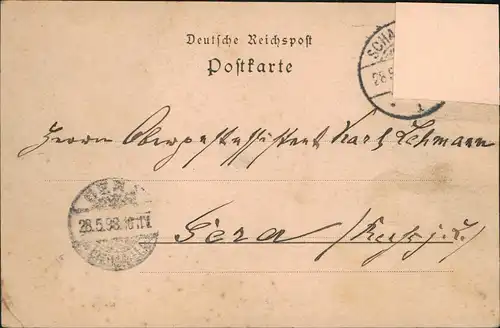 Deutsche Reichspost
Postkarte
SCHA
28.5
Herrn Oberpostassistent Karl Lehmann
GERA
28.5.98.10-11V.
Gera